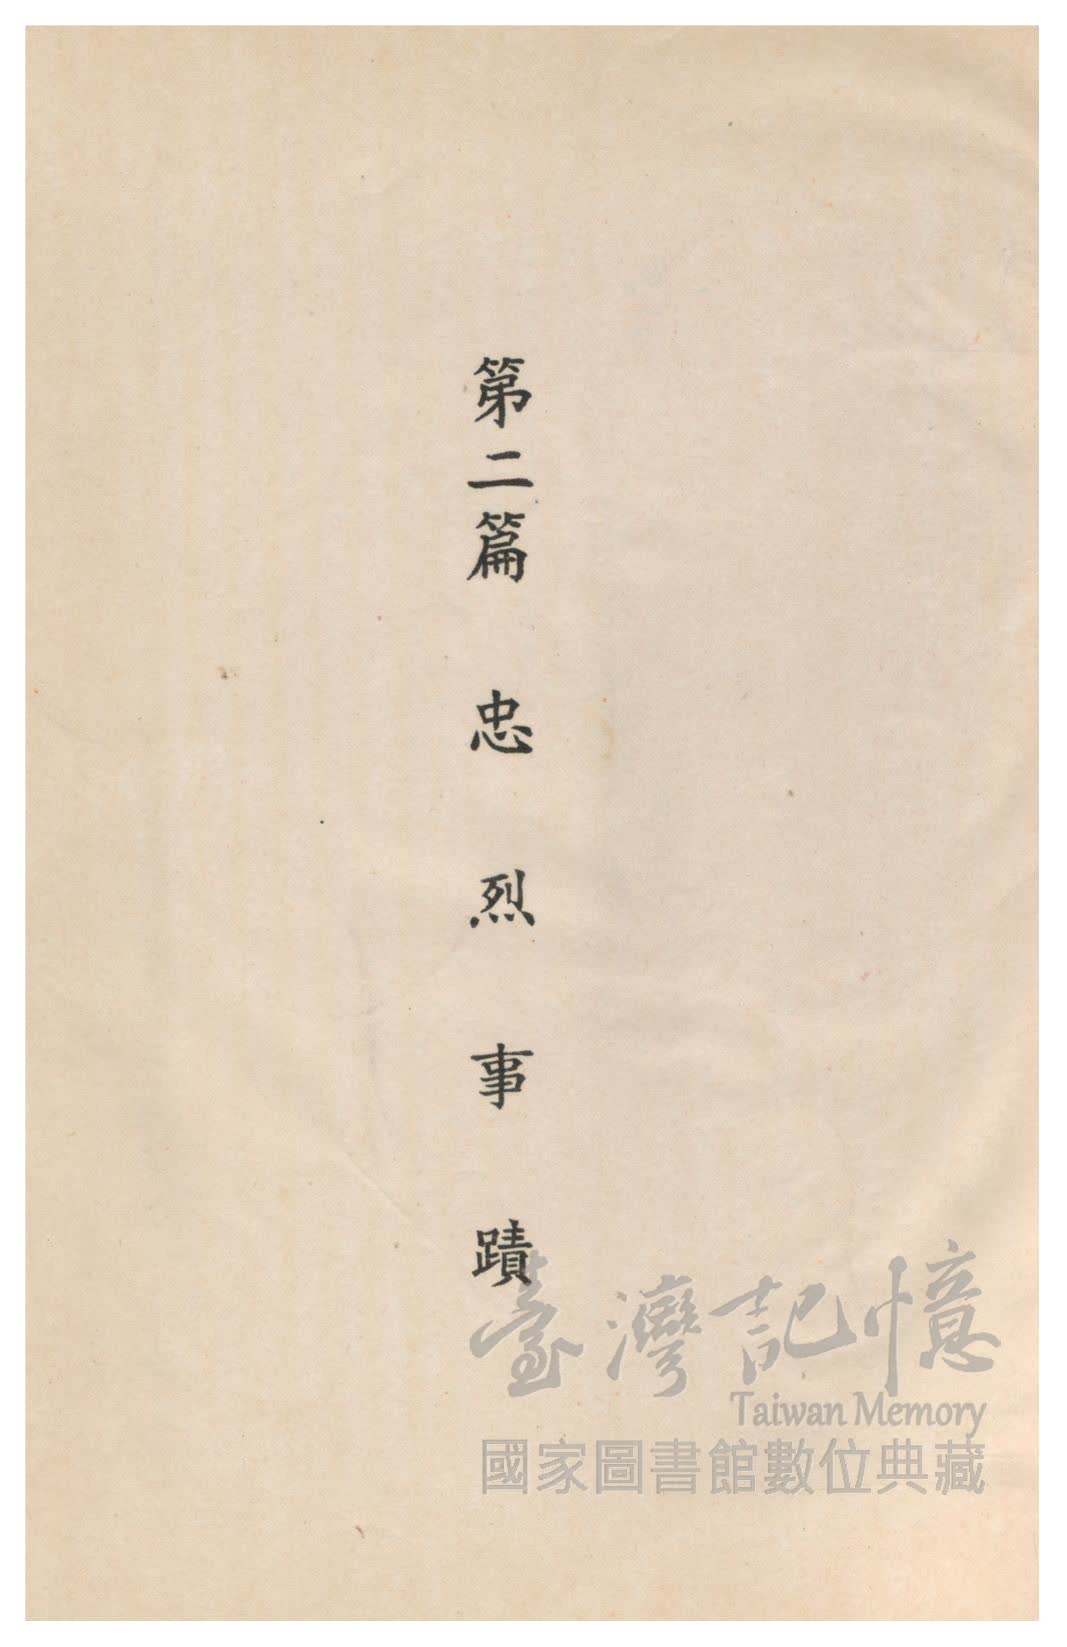 第二篇 忠烈事蹟
臺灣記憶
Taiwan Memory
國家圖書館數位典藏